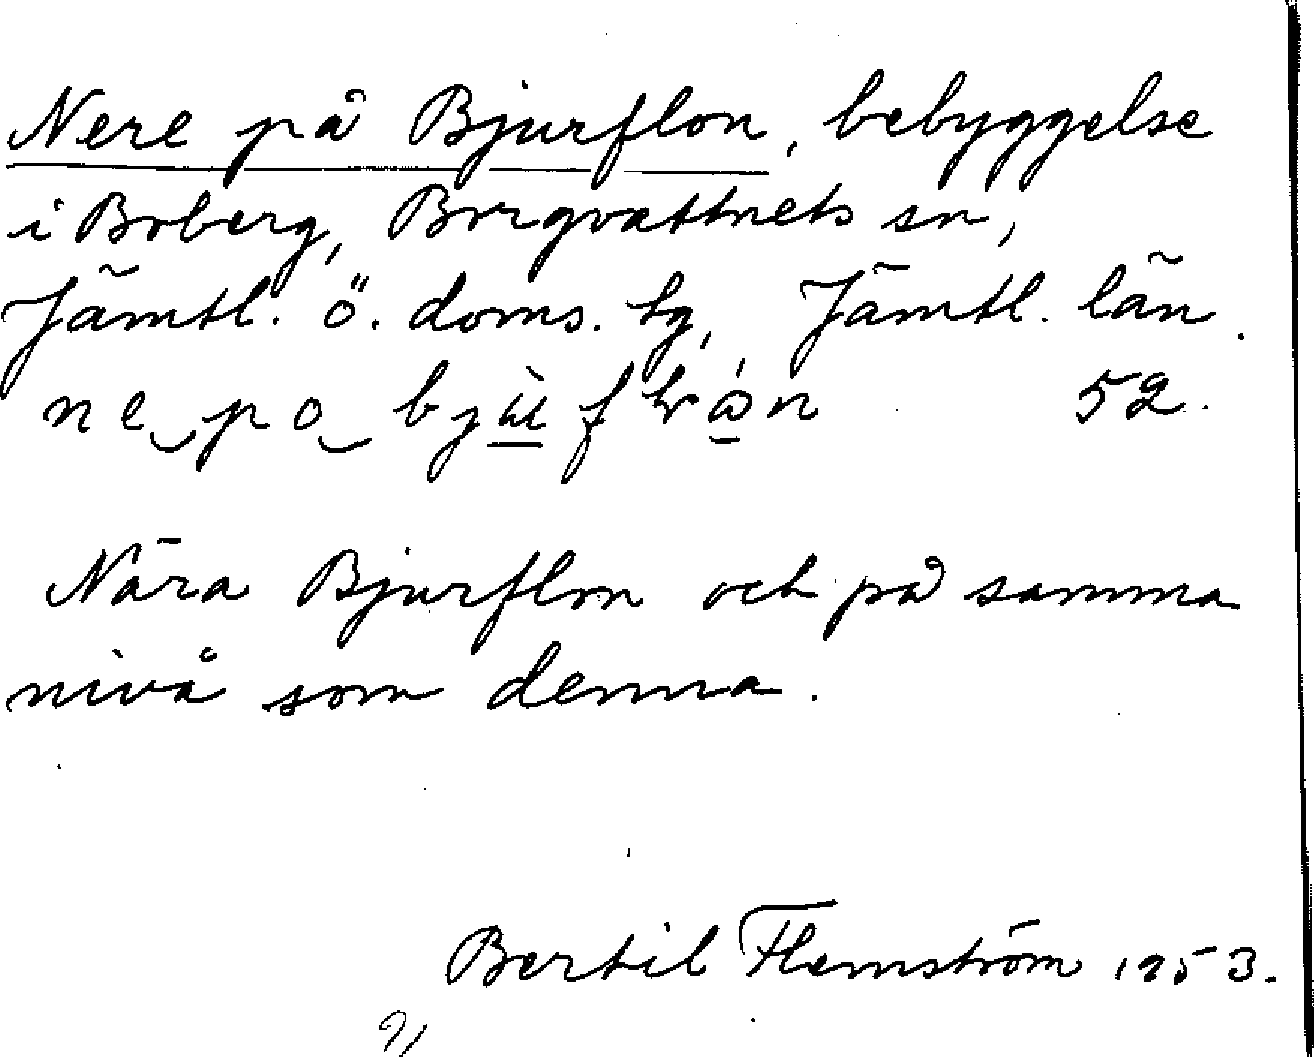 Nere på Bjurflon, bebyggelse
i Boberg, Borgvattnets sn,
Jämtl. ö. doms. tg, Jämtl. län.
ne‿po‿ 52.
Nära Bjurflon och på samma
nivå som denna.
Bertil Flemström 1953.